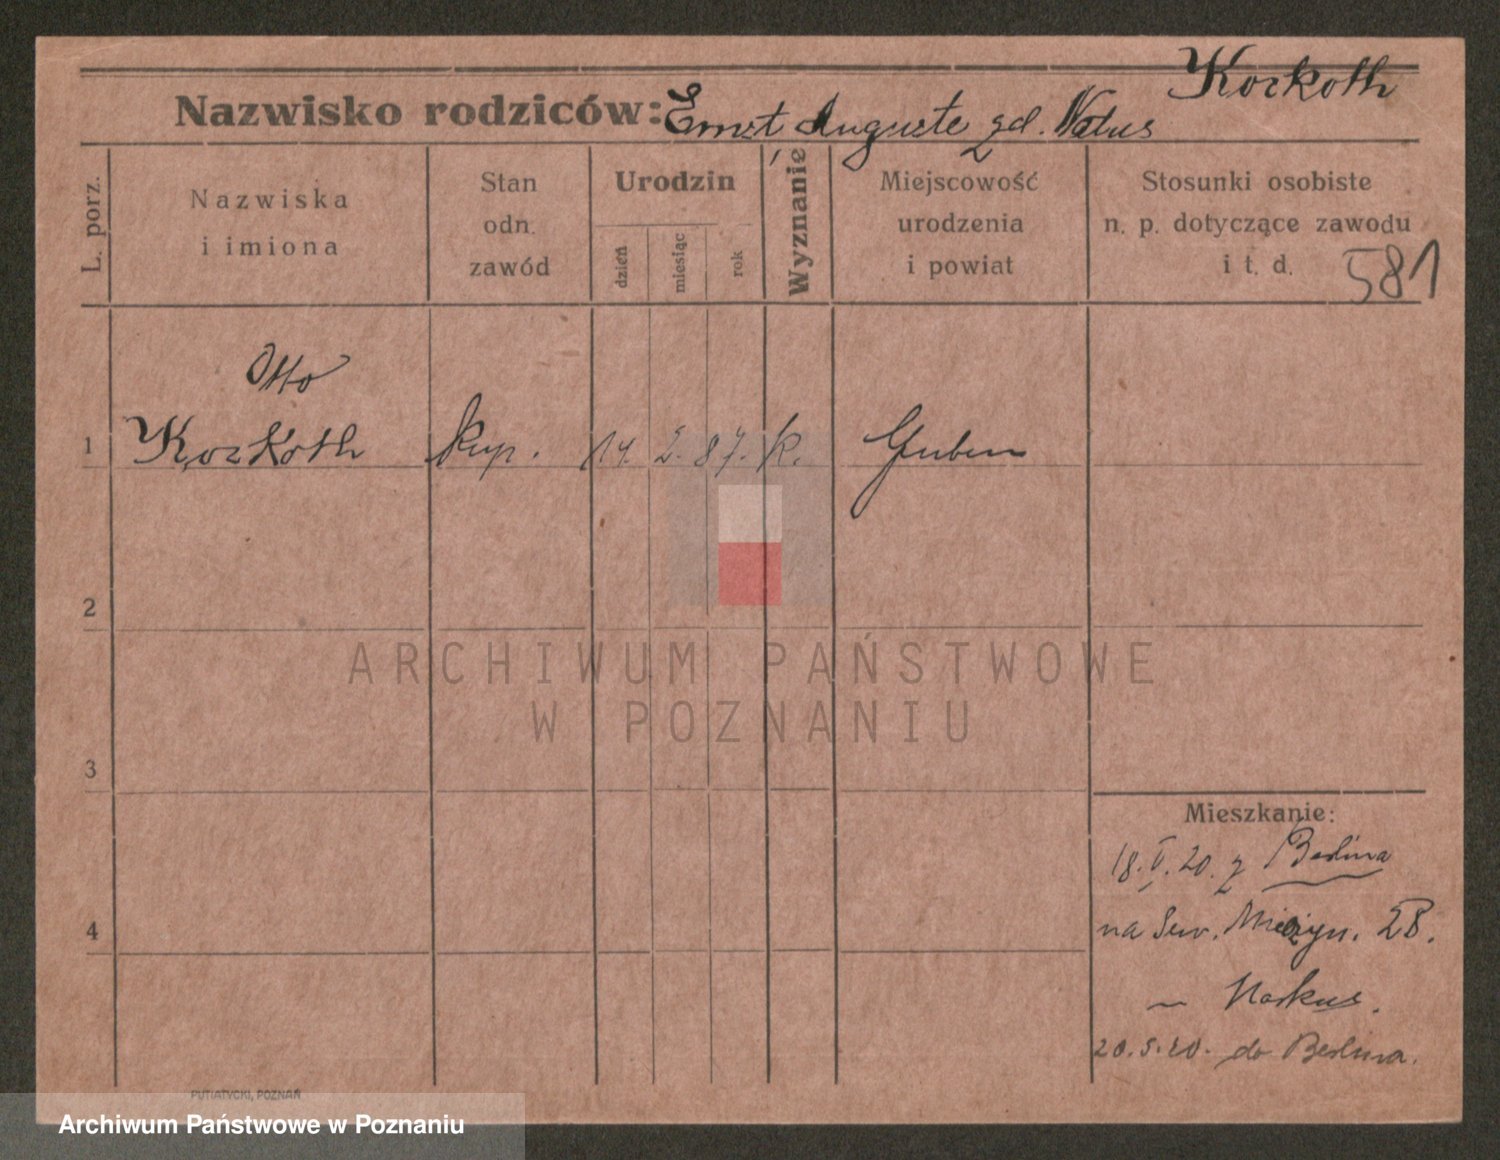 Korkoth
Nazwisko rodziców: Ernst Auguste zd. Natus
L. porz.
Nazwiska
i imiona
Stan
odn.
zawód
Urodzin
dzień
miesiąc
rok
Wyznanie
Miejscowość
urodzenia
i powiat
Stosunki osobiste
n. p. dotyczące zawodu
i t. d.
581
Otto
1 Korkoth kup. 14. 2. 87. k. Guben
2
ARCHIWUM PAŃSTWOWE
W POZNANIU
3
Mieszkanie:
18. V. 20. z Berlina
4
na Sew. 28.
– Markus.
20.5.20. do Berlina.
PUTIATYCKI, POZNAŃ
Archiwum Państwowe w Poznaniu